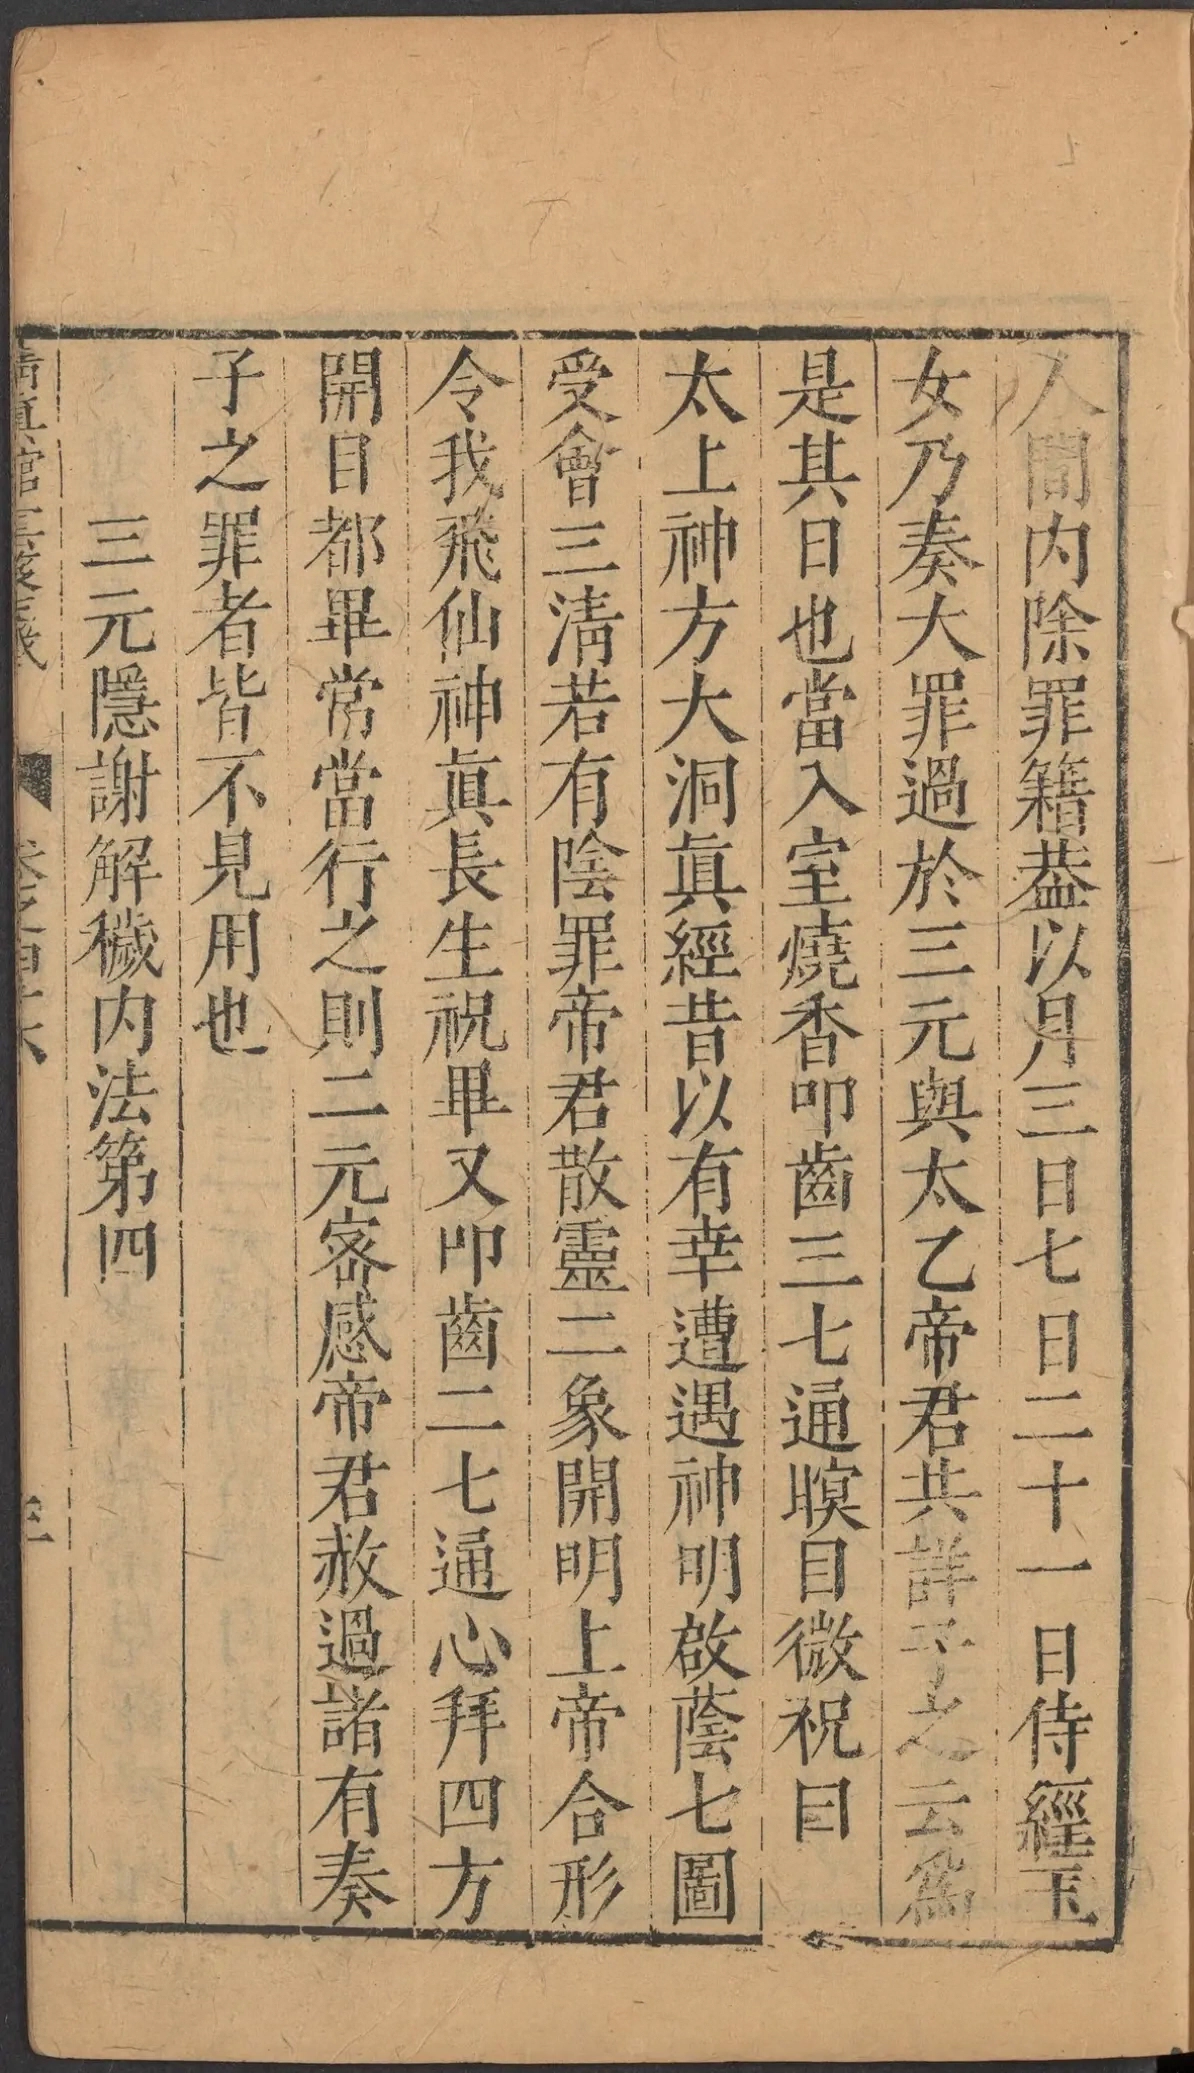 人間内除罪籍葢以月三日七日二十一日侍經玉
女乃奏大罪過於三元與太乙帝君共詳子之云爲
是其日也當入室燒香叩齒三七通瞑目微祝曰
太上神方大洞眞經昔以有幸遭遇神明啟蔭七圖
受會三淸若有陰罪帝君散靈二象開明上帝合形
令我飛仙神眞長生祝畢又叩齒二七通心拜四方
開目都畢常當行之則二元宻感帝君赦過諸有奏
子之罪者皆不見用也
三元隱謝解穢内法第四